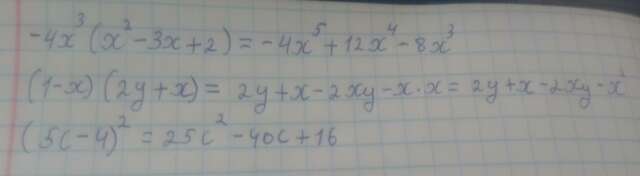 -4x³(x²-3x+2)=-4x⁵+12x⁴-8x³
(1-x)(2y+x)= 2y+x-2xy-x·x= 2y+x-2xy-x²
(5c-4)²=25c²-40c+16